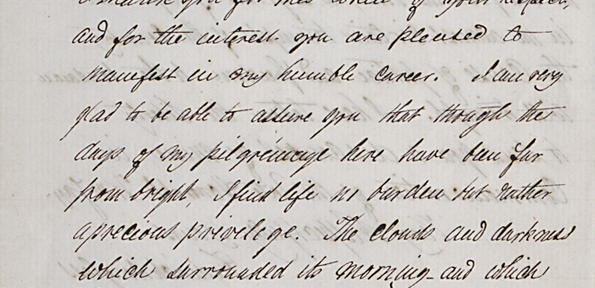 you for this of your respect,
and for the interest you are pleased to
manifest in my humble career. I am very
glad to be able to assure you that though the
days of my pilgrimage here have been far
from bright, I find life no burden but rather
a precious privilege. The clouds and darkness
which surrounded its morning and which